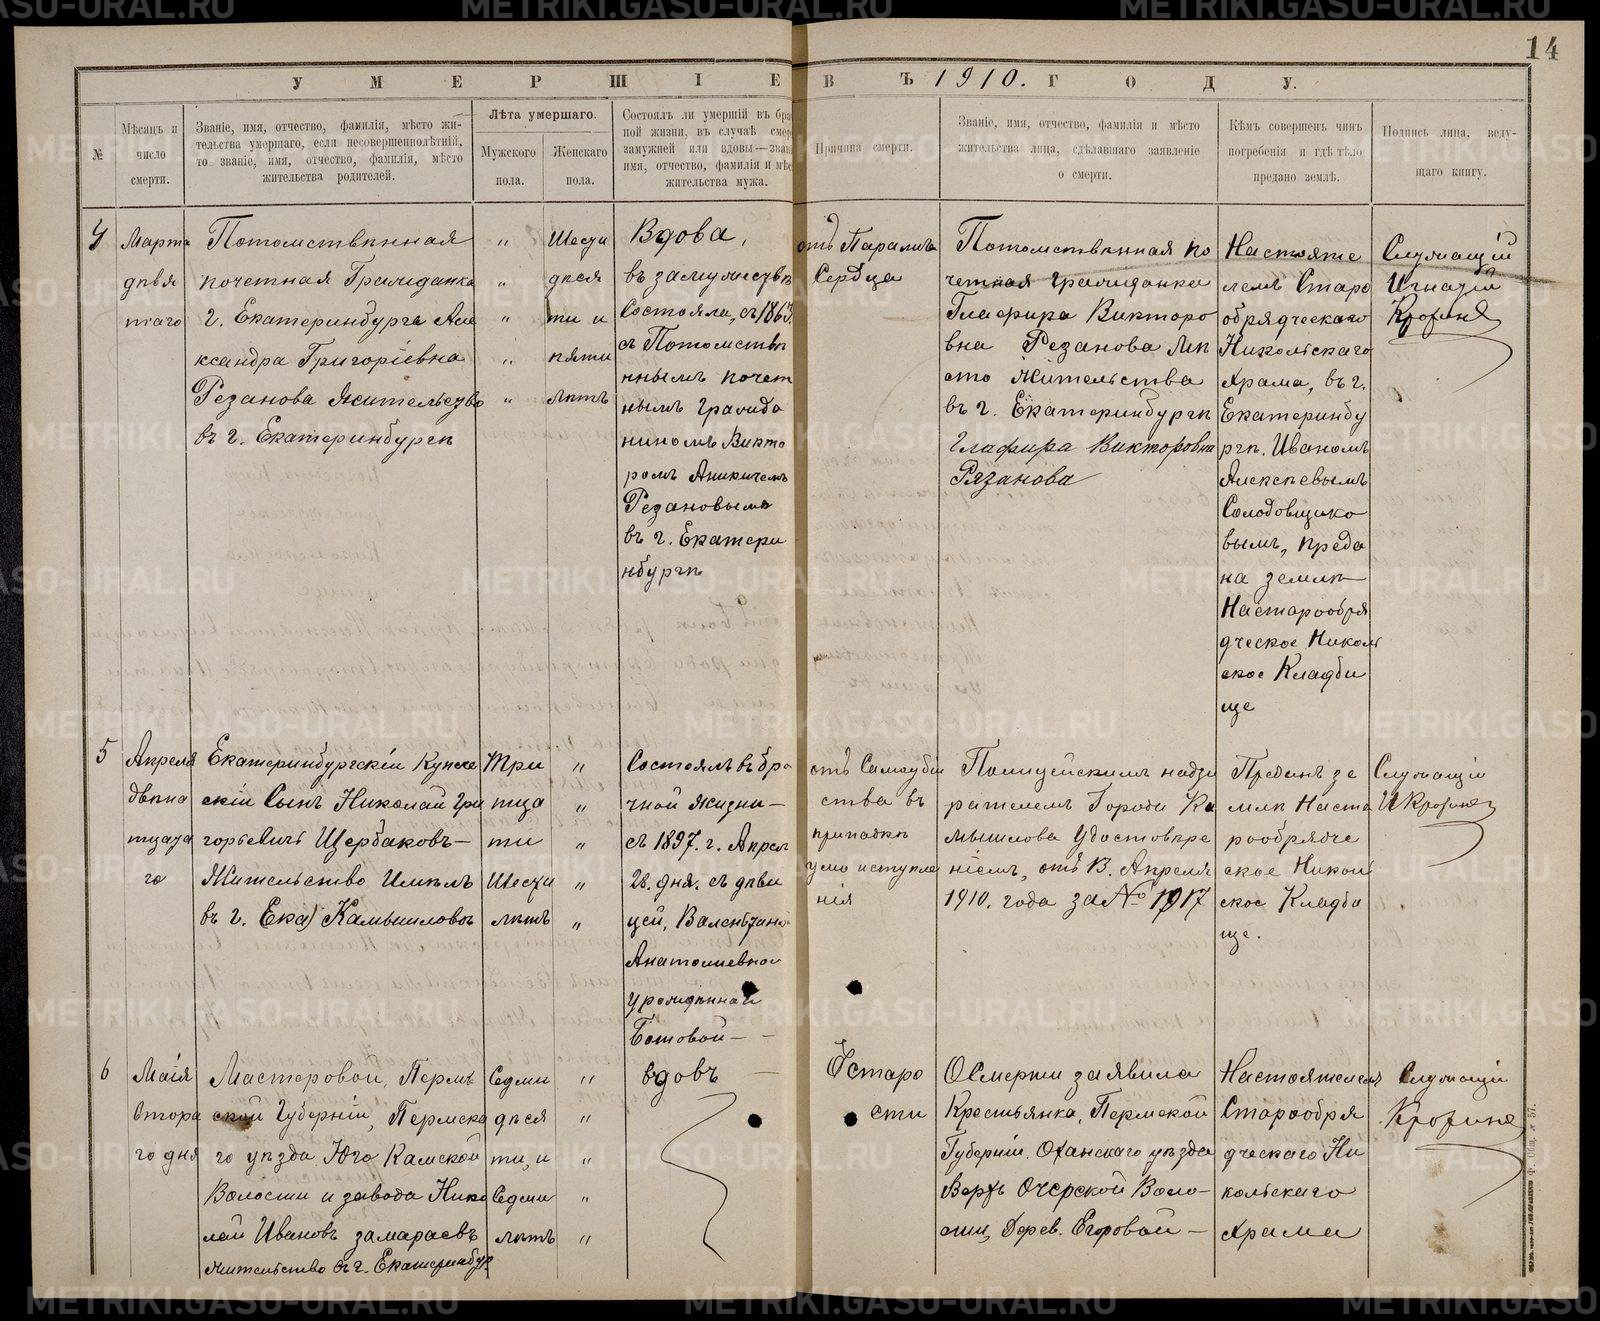 14
УМЕРШІЕ ВЪ 1910. ГОДУ.
№
Мѣсяцъ и
число
смерти.
Званіе, имя, отчество, фамилія, мѣсто жи-
тельства умершаго, если несовершеннолѣтній,
то званіе, имя, отчество, фамилія, мѣсто
жительства родителей.
Лѣта умершаго.
Мужского
пола.
Женскаго
пола.
Состоялъ ли умершій въ бра
ной жизни, въ случаѣ смер
замужней или вдовы—зван
имя, отчество, фамилія и мѣс
жительства мужа.
Причина смерти.
Званіе, имя, отчество, фамилія и мѣсто
жительства лица, сдѣлавшаго заявленіе
о смерти.
Кѣмъ совершенъ чинъ
погребенія и гдѣ тѣло
предано землѣ.
Подпись лица, веду-
щаго книгу.
4
Марта
девя
таго
Потомственная
почетная Гражданка
г. Екатеринбурга Але
ксандра Григоріевна
Резанова Жительство
въ г. Екатеринбургѣ
"
"
"
"
"
Шести
деся
ти и
пяти
лѣтъ
Вдова,
въ замужествѣ
Состояла, съ 1863.
съ Потомстве
ннымъ почет
нымъ Гражда
ниномъ Викто
ромъ Аникичемъ
Резановымъ
въ г. Екатери
нбургѣ
отъ Паралича
Сердца
Потомственная по
четная Гражданка
Глафира Викторо
вна Резанова Мѣ
сто Жительства
въ г. Екатеринбургѣ
Глафира Викторовна
Рязанова
Настояте
лемъ Старо
обрядческаго
Никольскаго
Храма, въ г.
Екатеринбу
ргѣ. Иваномъ
Алексѣевымъ
Солодовщико
вымъ, преда
на землѣ
Настарообря
дческое Николь
ское Кладби
ще
Служащій
Игнатій
5
Апреля
двена
тцата
го
Екатеринбургскій Купече
скій Сынъ Николай Гри
горьевичъ Щербаковъ—
Жительство Имѣлъ
въ г. Ека) Камышловѣ
Три
тца
ти
Шести
лѣтъ
"
"
"
"
"
Состоялъ въ бра
чной жизни—
съ 1897. г. Апрел
28. дня. съ деви
цей, Валентиной
Анатолиевной
урожденной
Ботовой— —
отъ Самоубій
ства въ
припадкѣ
умо иступле
нія
Полицейскимъ надзи
рателемъ Города Ка
мышлова Удостовѣре
ніемъ, отъ 13. Апреля
1910. года за № 1917
Преданъ зе
млѣ Наста
рообрядче
ское Николь
ское Кладби
ще.
Служащій
6
Маія
Втора
го дня
Мастеровой, Перм
ской Губерніи, Пермска
го уѣзда Юго Камской
Волости и завода Нико
лай Ивановъ Замараевъ
Жительство въ г. Екатеринбур
Седми
деся
ти, и
Седми
лѣтъ
"
"
"
"
"
вдовъ —
Отстаро
сти
О Смерти заявила
Крестьянка, Пермской
Губерніи. Оханскаго уѣзда
Верхъ Очерской Воло—
сти, Дерев. Егоровой—
Настоятелемъ
Старообря
дческаго Ни
кольскаго
Храма
Служащій